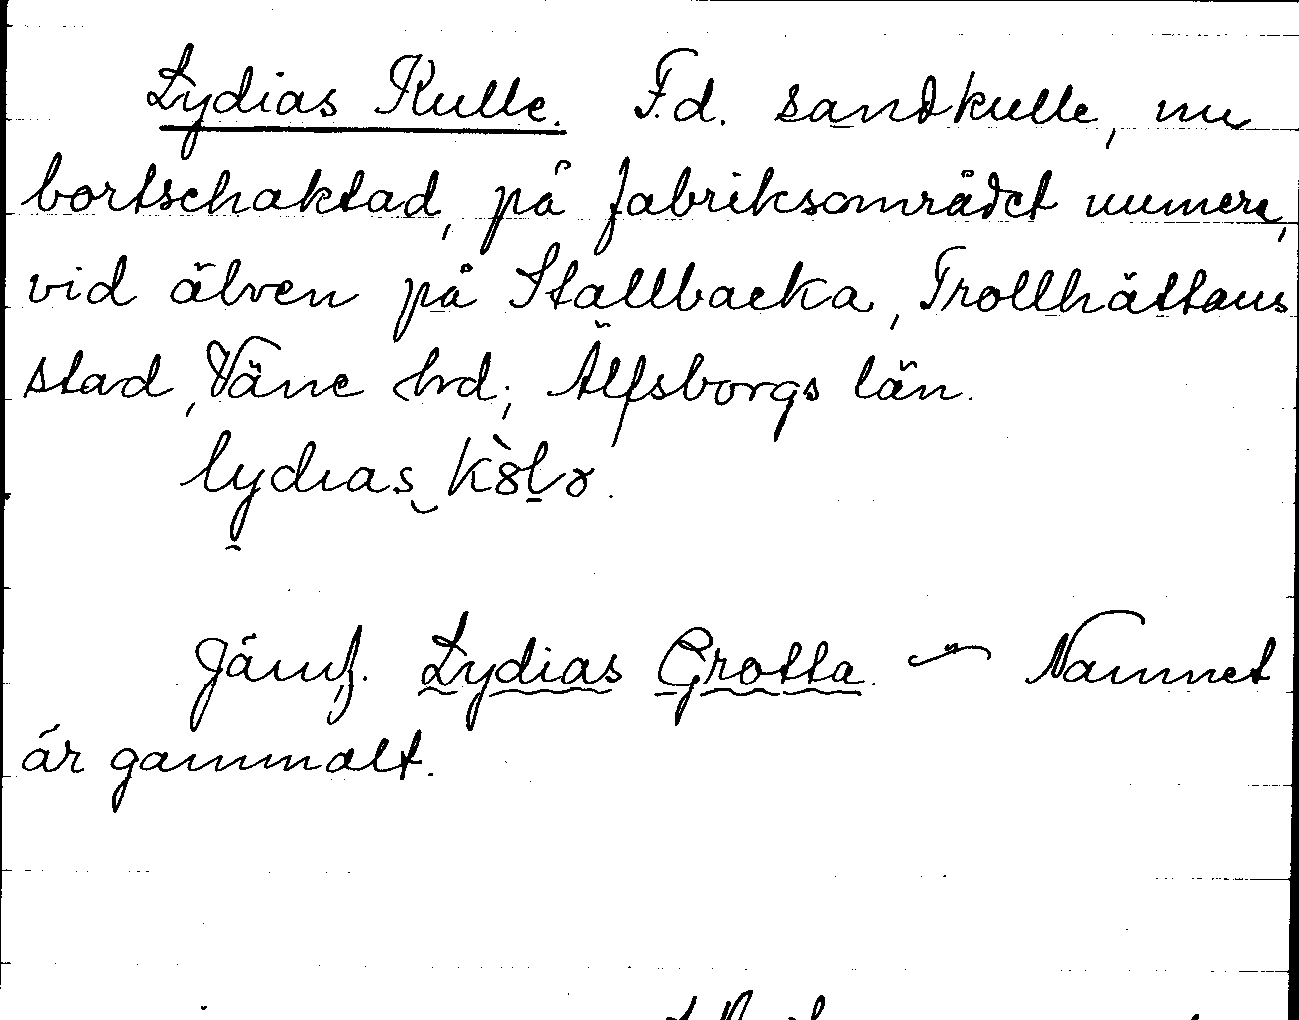 Lydias Kulle. F.d. sandkulle, nu
bortschaktad, på fabriksområdet numera,
vid älven på Stallbacka, Trollhättans
stad, Väne hd, Älfsborgs län.
Jämf. Lydias Grotta. — Namnet
är gammalt.